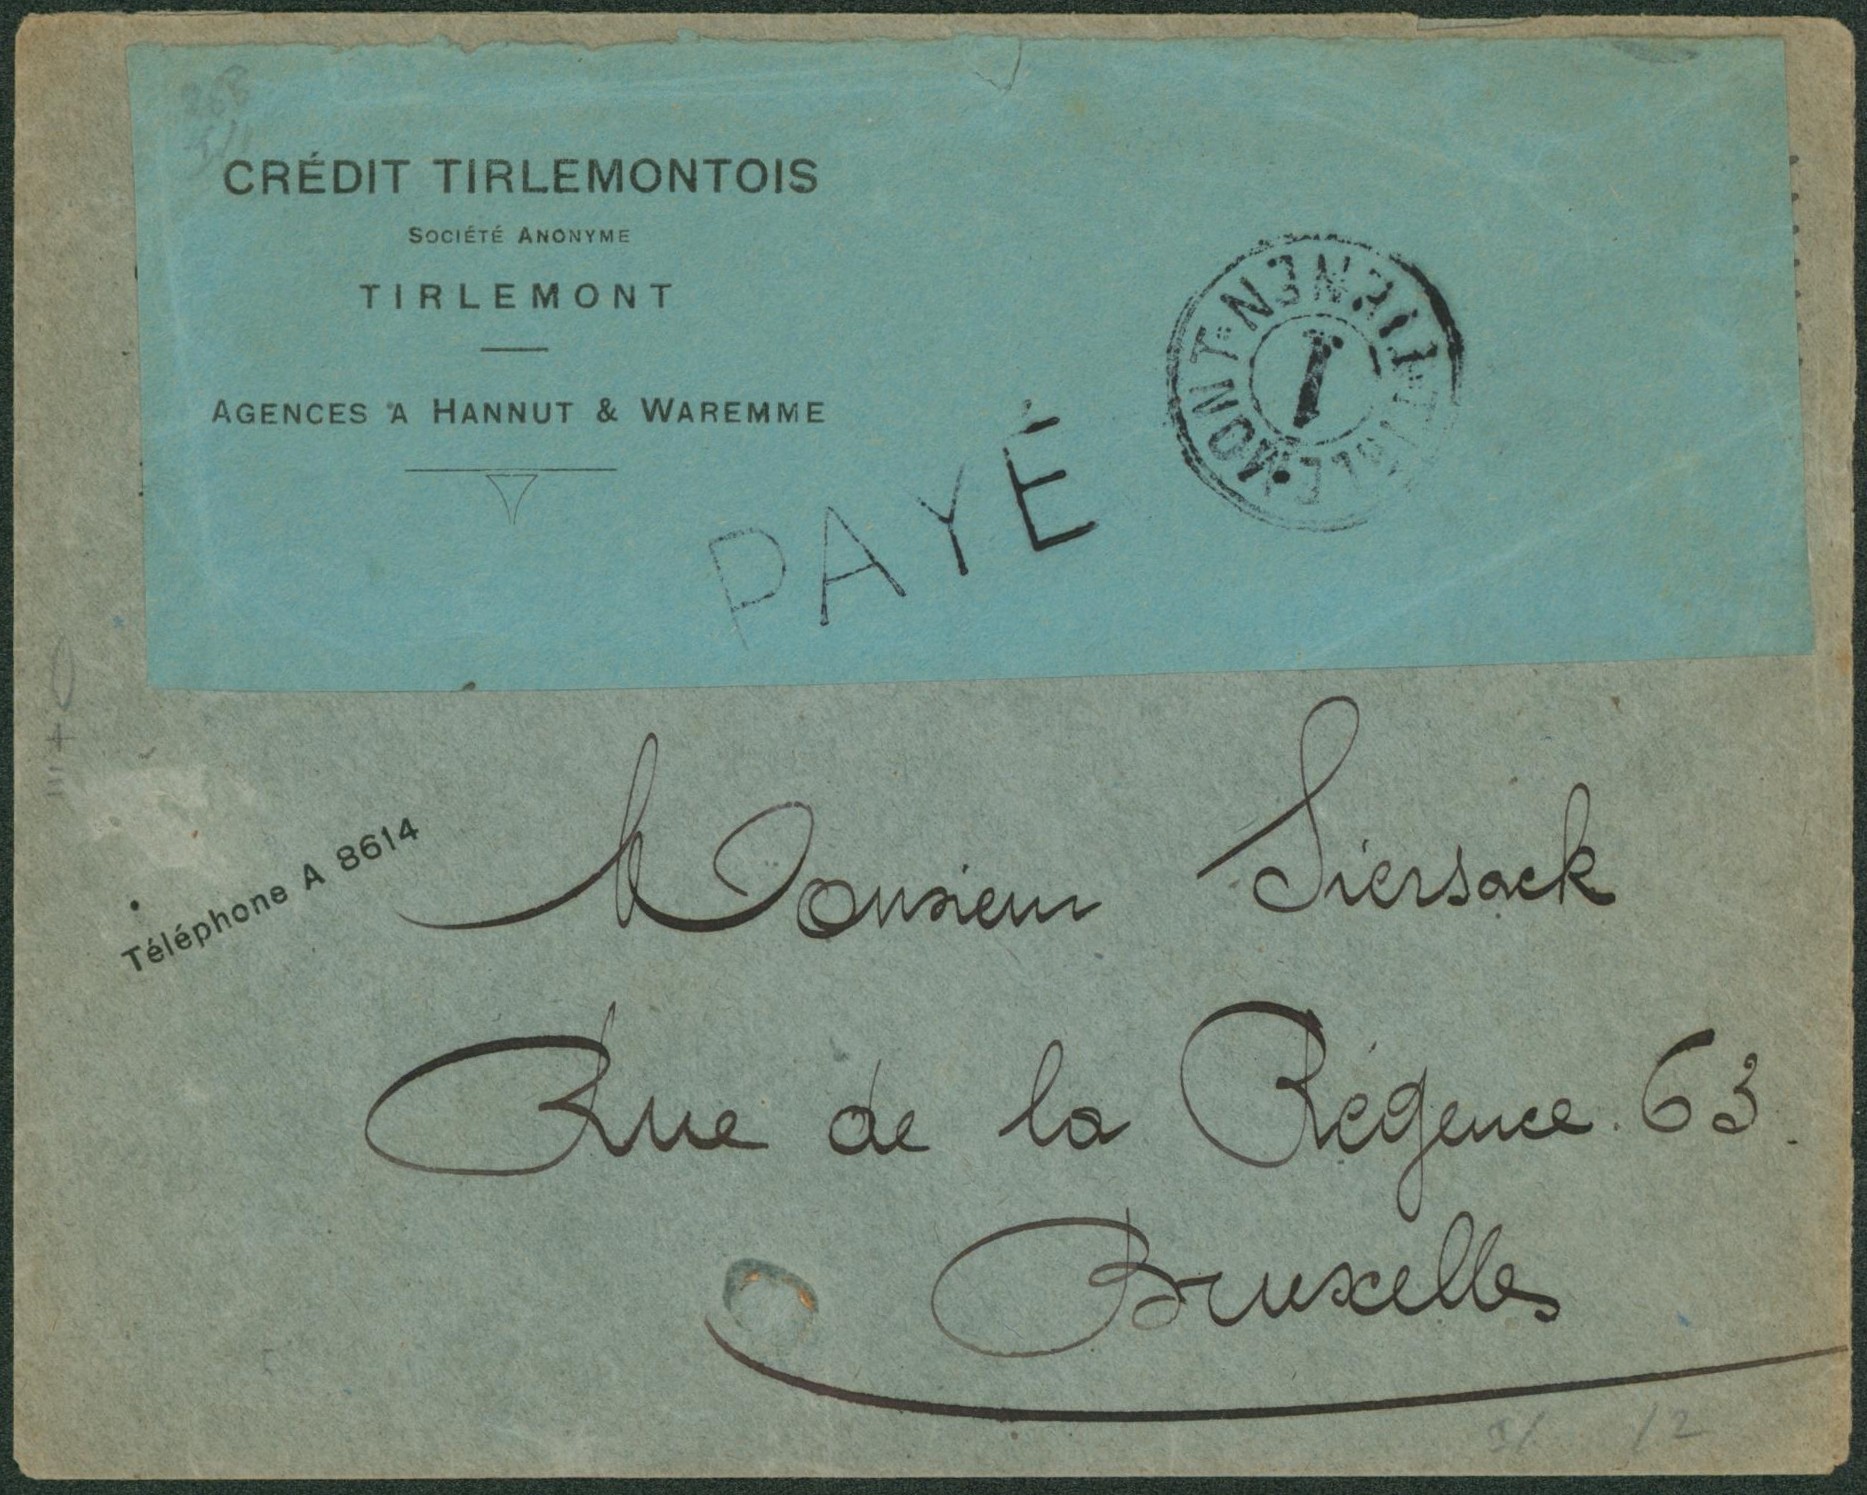 CRÉDIT TIRLEMONTOIS
SOCIÉTÉ ANONYME
TIRLEMONT
AGENCES A HANNUT & WAREMME
PAYÉ
TIENEN
1
TIRLEMONT
Téléphone A 8614
Monsieur Siersack
Rue de la Régence 63.
Bruxelles